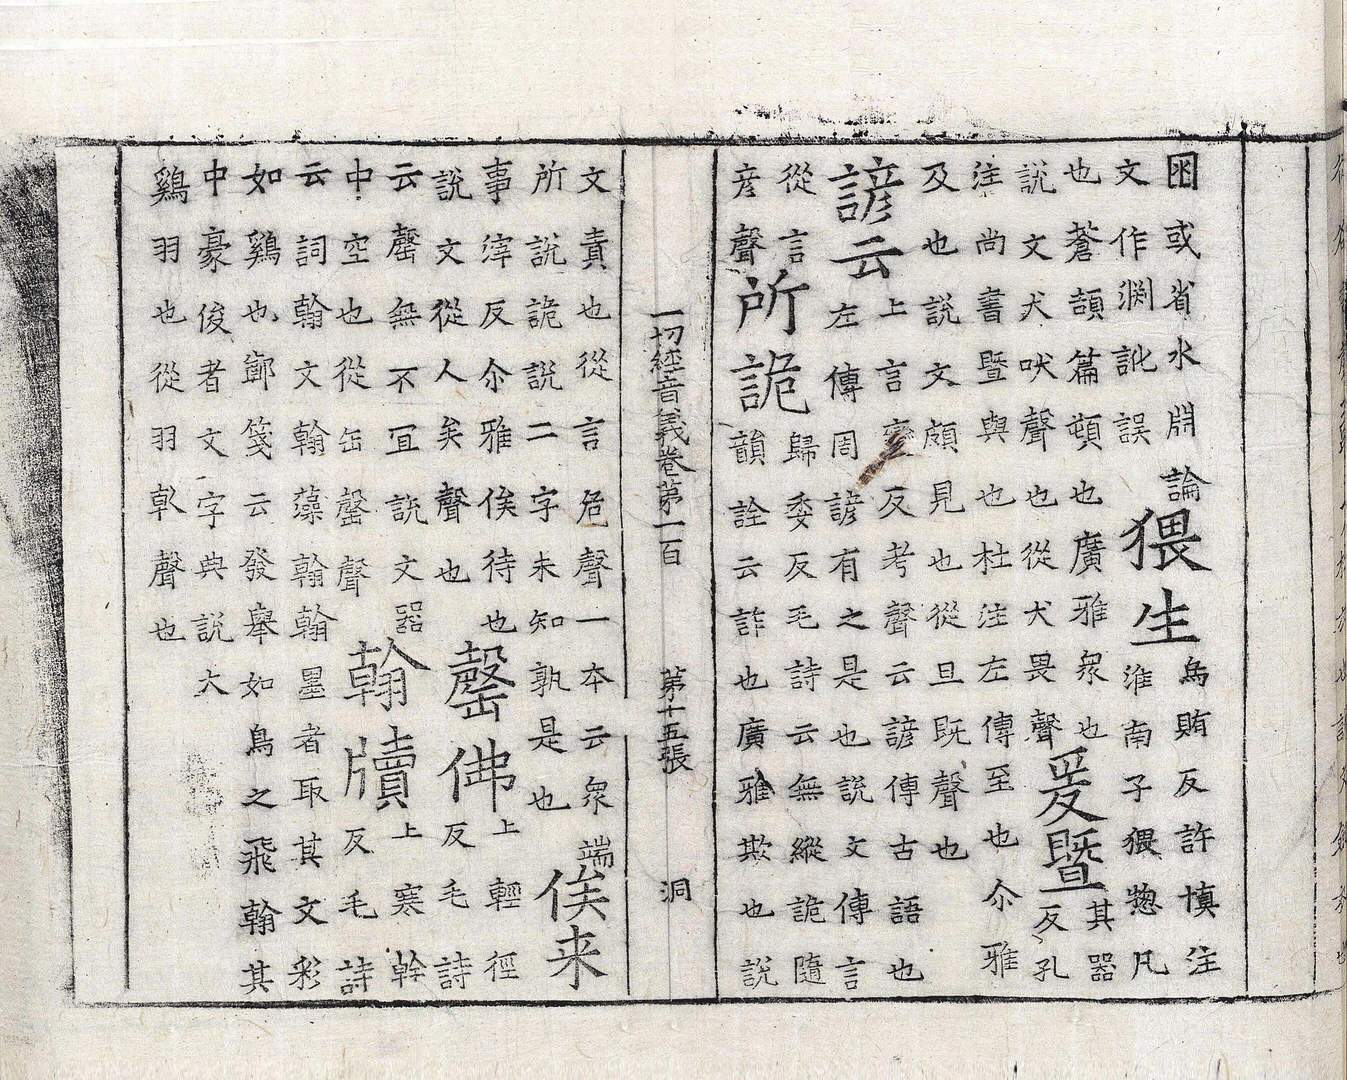 囦或省水𣶒
文作渕訛誤
論猥生
烏賄反許慎注
淮南子猥惣凡
也蒼頡篇頓也廣雅衆也
說文犬吠聲也從犬畏聲
爰暨
其器
反孔
注尚書暨與也杜注左傳至也尒雅
及也說文頗見也從旦既聲也
諺云
上言變反考聲云諺傳古語也
左傳周諺有之是也說文傳言
從言
彥聲
所詭
歸委反毛詩云無縱詭隨
韻詮云詐也廣雅欺也說
一切經音義卷第一百 第十五張 洞
文責也從言危聲一本云衆端
所說詭說二字未知孰是也
俟来
事滓反尒雅俟待也
說文從人矣聲也
罄佛
上輕徑
反毛詩
云罄無不宜說文器
中空也從缶罄聲
翰牘
上寒幹
反毛詩
云詞翰文翰藻翰翰墨者取其文彩
如鷄也鄭箋云發舉如鳥之飛翰其
中豪俊者文字典說大
鷄羽也從羽倝聲也